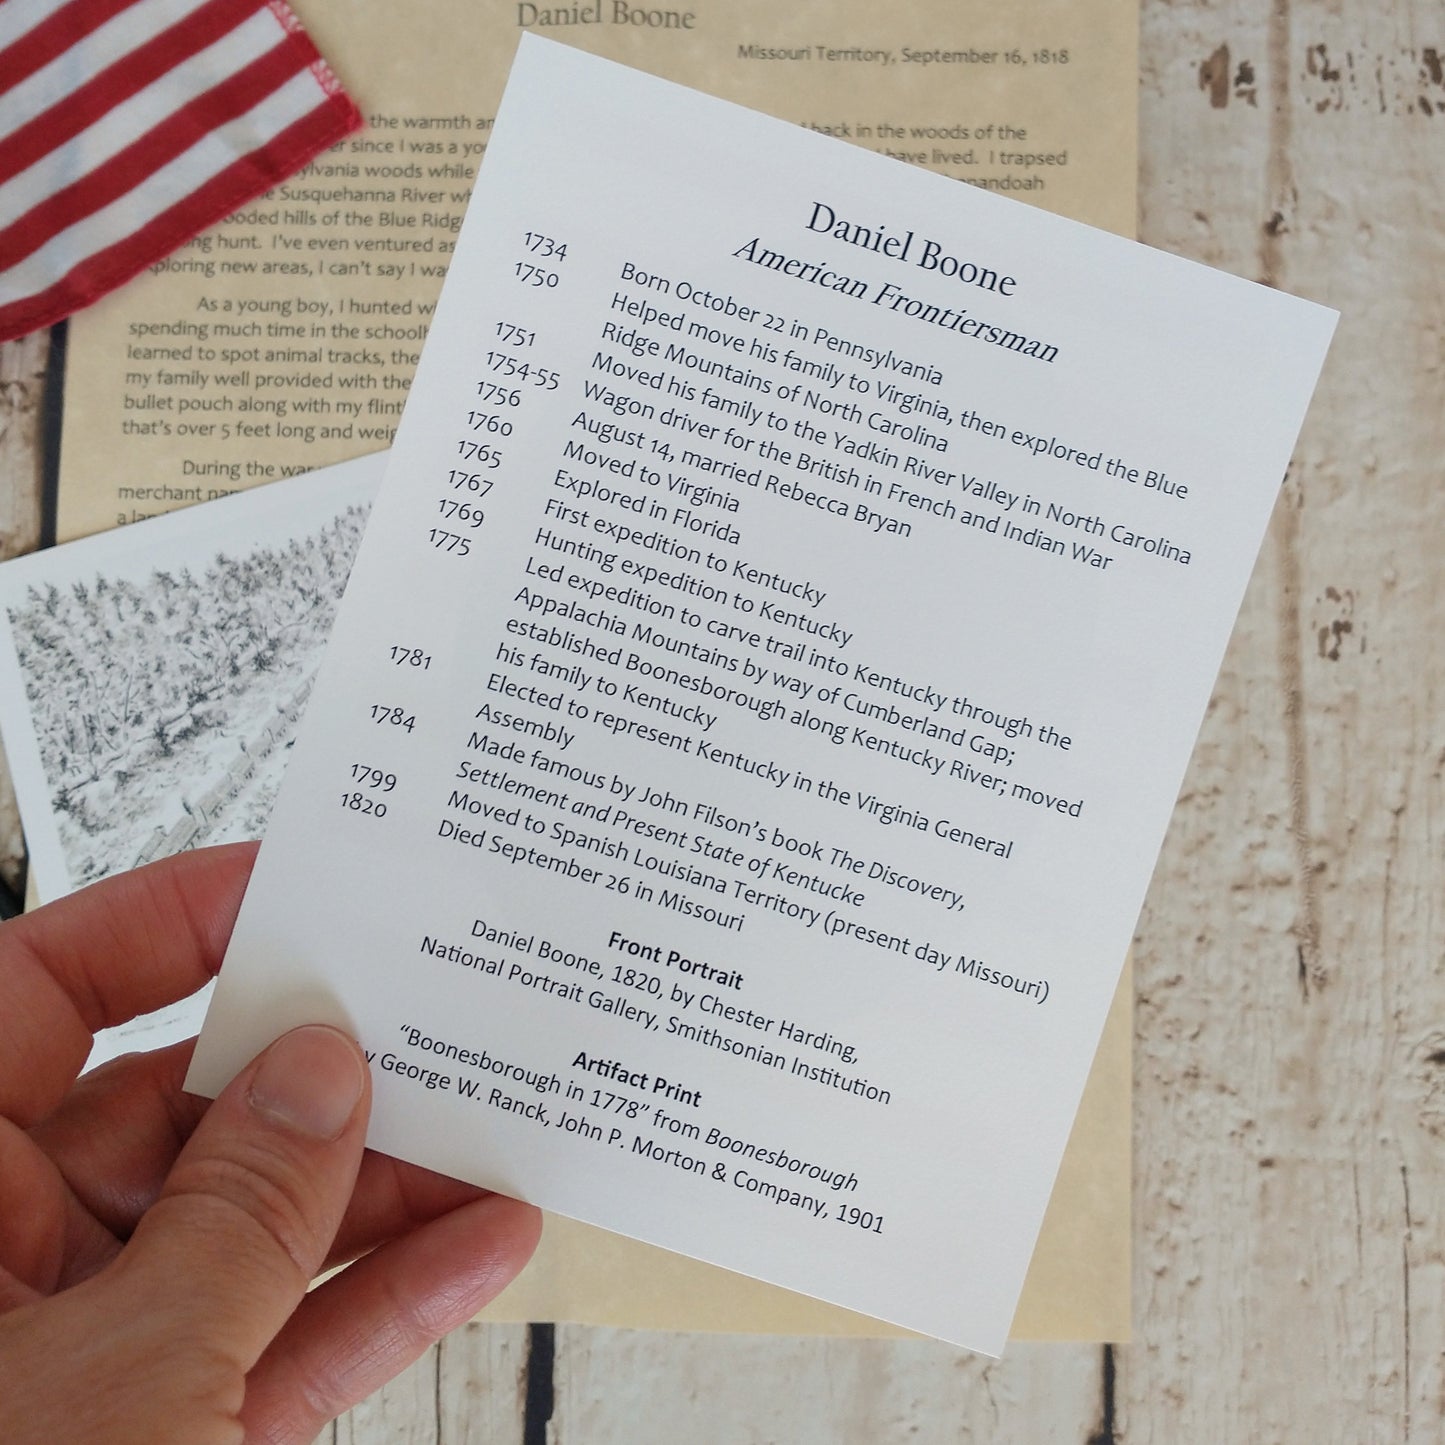 Daniel Boone
Missouri Territory, September 16, 1818
the warmth
back in the woods of the
since I was a
have lived. I trapsed
woods while
Susquehanna River
hills of the Blue
hunt. I've even ventured as
new areas, I can't say I
As a young boy, I hunted
spending much time in the
learned to spot animal tracks, the
my family well provided with
bullet pouch along with my
that's over 5 feet long and
During the
merchant
Daniel Boone
American Frontiersman
1734 Born October 22 in Pennsylvania
1750 Helped move his family to Virginia, then explored the Blue
Ridge Mountains of North Carolina
1751 Moved his family to the Yadkin River Valley in North Carolina
1754-55 Wagon driver for the British in French and Indian War
1756 August 14, married Rebecca Bryan
1760 Moved to Virginia
1765 Explored in Florida
1767 First expedition to Kentucky
1769 Hunting expedition to Kentucky
1775 Led expedition to carve trail into Kentucky through the
Appalachia Mountains by way of Cumberland Gap;
established Boonesborough along Kentucky River; moved
his family to Kentucky
1781 Elected to represent Kentucky in the Virginia General
Assembly
1784 Made famous by John Filson's book The Discovery,
Settlement and Present State of Kentucke
1799 Moved to Spanish Louisiana Territory (present day Missouri)
1820 Died September 26 in Missouri
Front Portrait
Daniel Boone, 1820, by Chester Harding,
National Portrait Gallery, Smithsonian Institution
Artifact Print
"Boonesborough in 1778" from Boonesborough
George W. Ranck, John P. Morton & Company, 1901